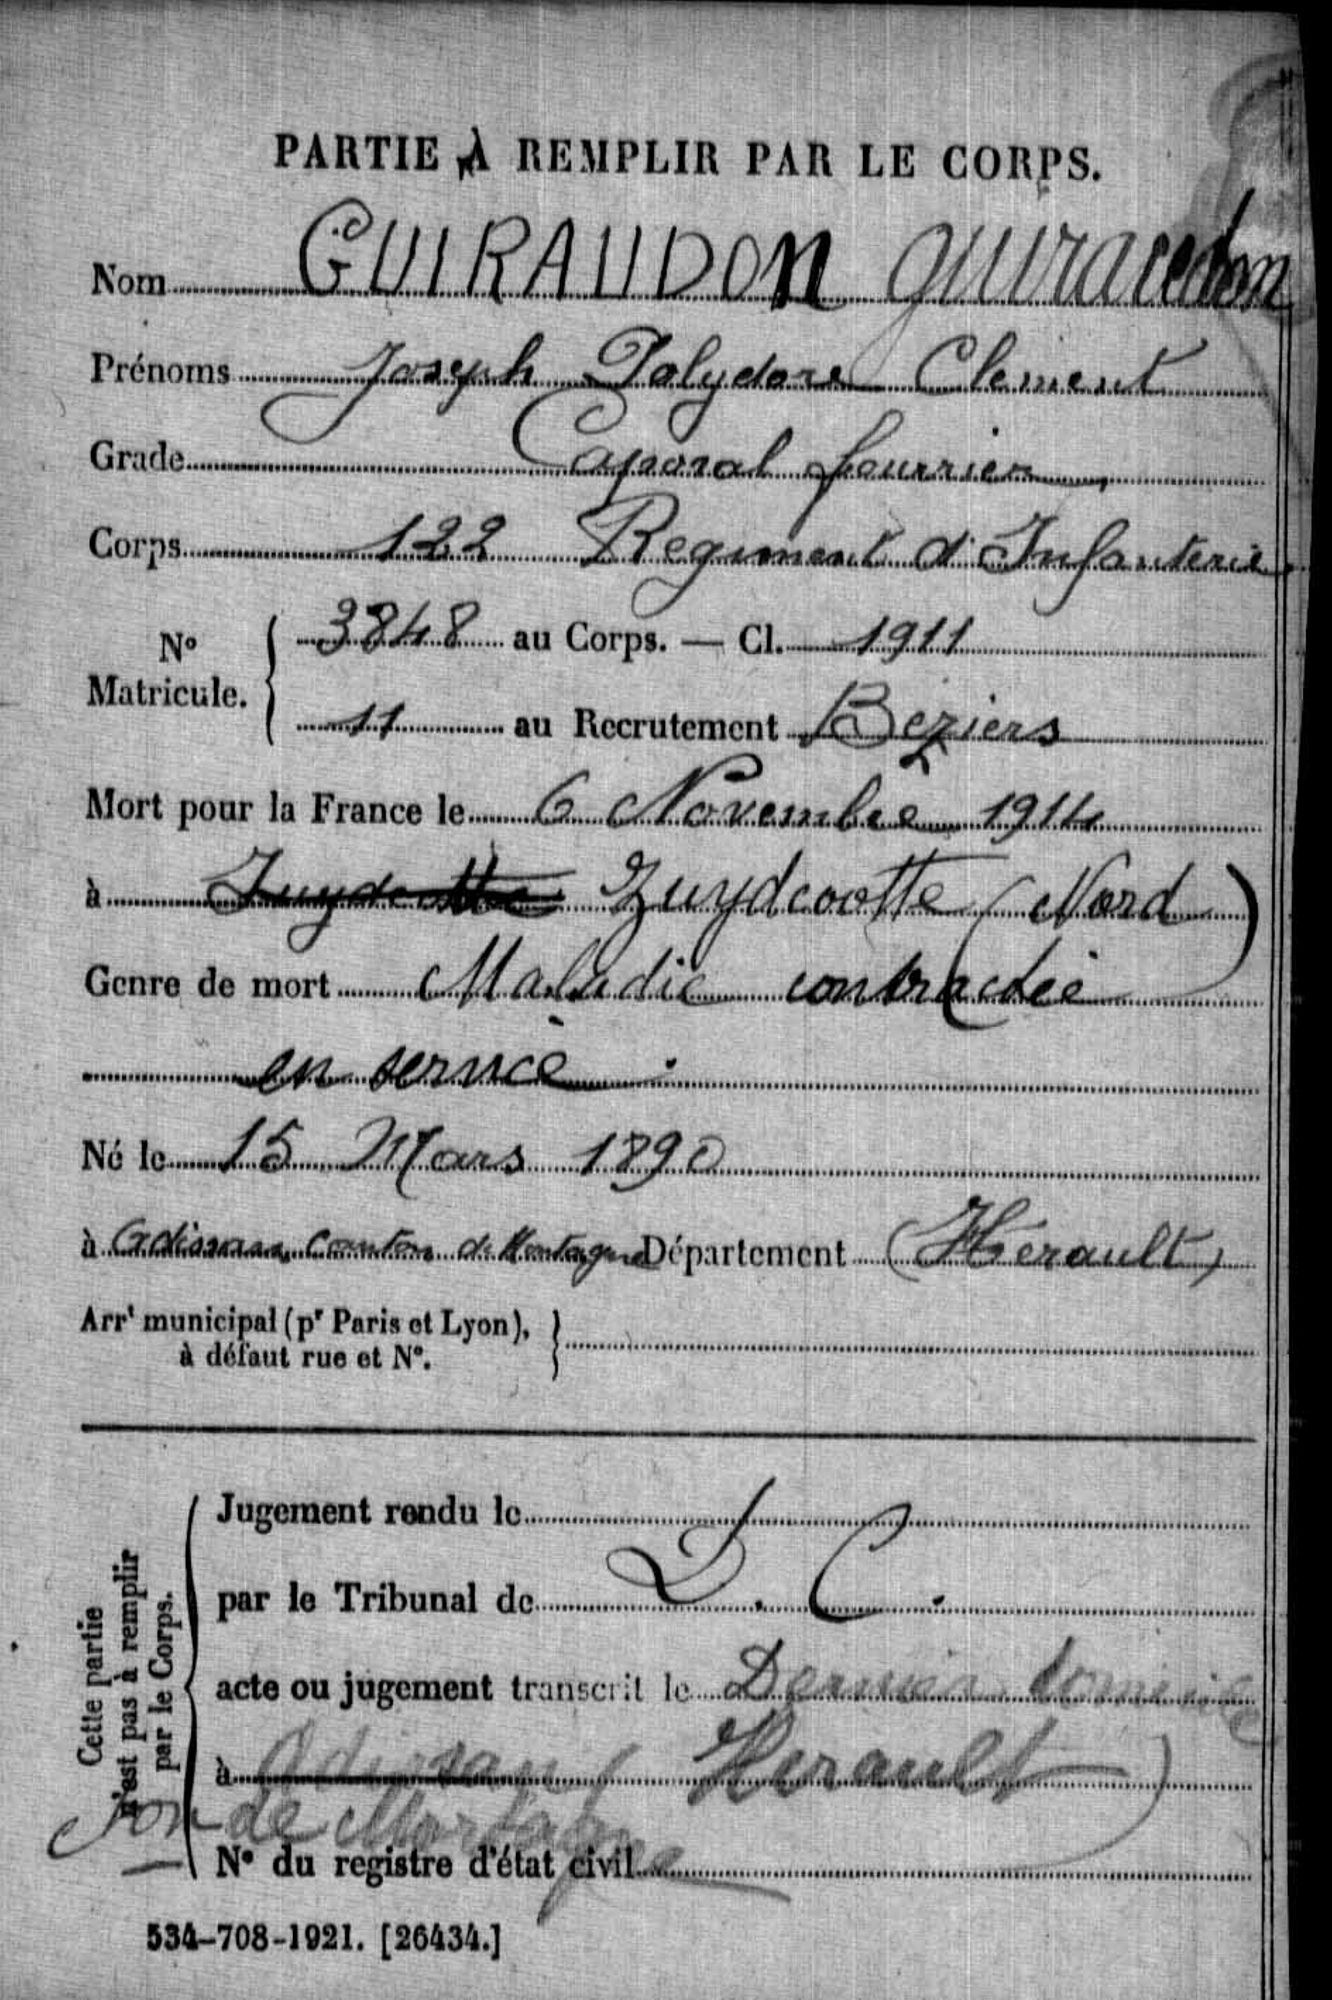 PARTIE À REMPLIR PAR LE CORPS.
Nom GUIRAUDON guiraudon
Prénoms Joseph Polydore Clement
Grade Caporal fourrier
Corps 122 Regiment d'Infanterie
N° Matricule. 3848 au Corps. — Cl. 1911
11 au Recrutement Beziers
Mort pour la France le 6 Novembre 1914
à Zuydcotte Zuydcootte (Nord)
Genre de mort Maladie contractée
en service.
Né le 15 Mars 1890
à Adissan, Canton de Montagnac Département (Hérault)
Arrt municipal (pr Paris et Lyon),
à défaut rue et N°.
Cette partie
n'est pas à remplir
par le Corps.
Jugement rendu le
par le Tribunal de D. C.
acte ou jugement transcrit le Dernier domicile
à Adissan (Hérault)
con de Montagne
N° du registre d'état civil
534-708-1921. [26434.]